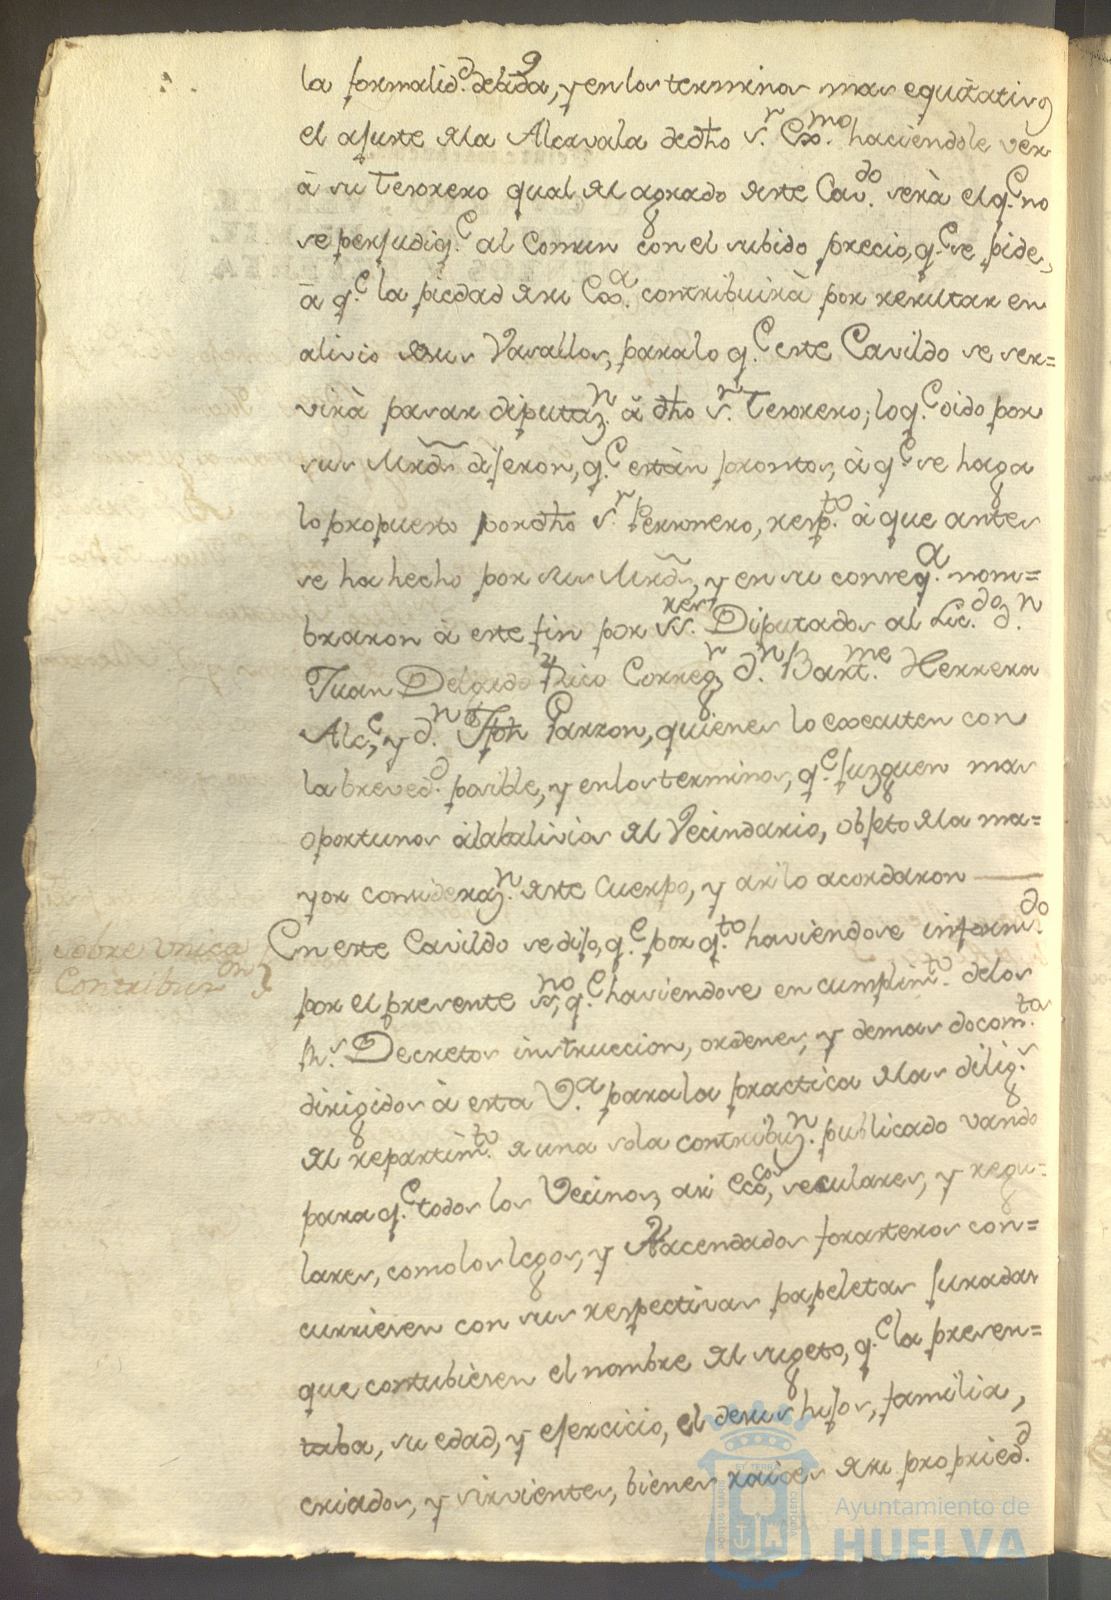 la formalid.d debida, y en los terminos mas equitativos
el ajuste de la Alcavala de dho s.r Exmo. haciendole ver
à su Tesorero qual del agrado de este Cav.do serà el q.e no
se perjudiq.e al Comun con el subido precio, q.e se pide,
à q.e la piedad de su Exa. contribuirà por resultar en
alivio de sus Vasallos, para lo q.e este Cavildo se ser=
virà pasar diputaz.n à dho s.r Tesorero; lo q.e oido por
sus Mrds dijeron, q.e estàn prontos, à q.e se haga
lo propuesto por dho s.r Personero, resp.to à que antes
se ha hecho por sus Mrds, y en su conseq.a nom=
braron à este fin por ss.res Diputados al Lic.do d.n
Juan Delgado Rico Correg.r d.n Bart.me Herrera
Alc.e, y d.n Jph Garzon, quienes lo executen con
la breved.d posible, y en los terminos, q.e juzguen mas
oportunos al alivio del Vecindario, objeto de la ma=
yor consideraz.n de este Cuerpo, y asi lo acordaron
sobre vnica
Contribuz.on
En este Cavildo se dijo, q.e por q.to haviendose inform.do
por el presente ss.no, q.e haviendose en cumplim.to de los
R.s Decretos instruccion, ordenes, y demas docom.tos
dirigidos à esta V.a para la practica de las dilig.s
del repartim.to de una sola contribuz.n publicado vando
para q.e todos los Vecinos, asi Ecc.cos, seculares, y regu=
lares, como los legos, y Hacendados forasteros con=
curriesen con sus respectivas papeletas juradas
que contubiesen el nombre del sugeto, q.e la presen=
taba, su edad, y ejercicio, el de sus hijos, familia,
criados, y sirvientes, bienes raices de su propried.d
Ayuntamiento de
HUELVA